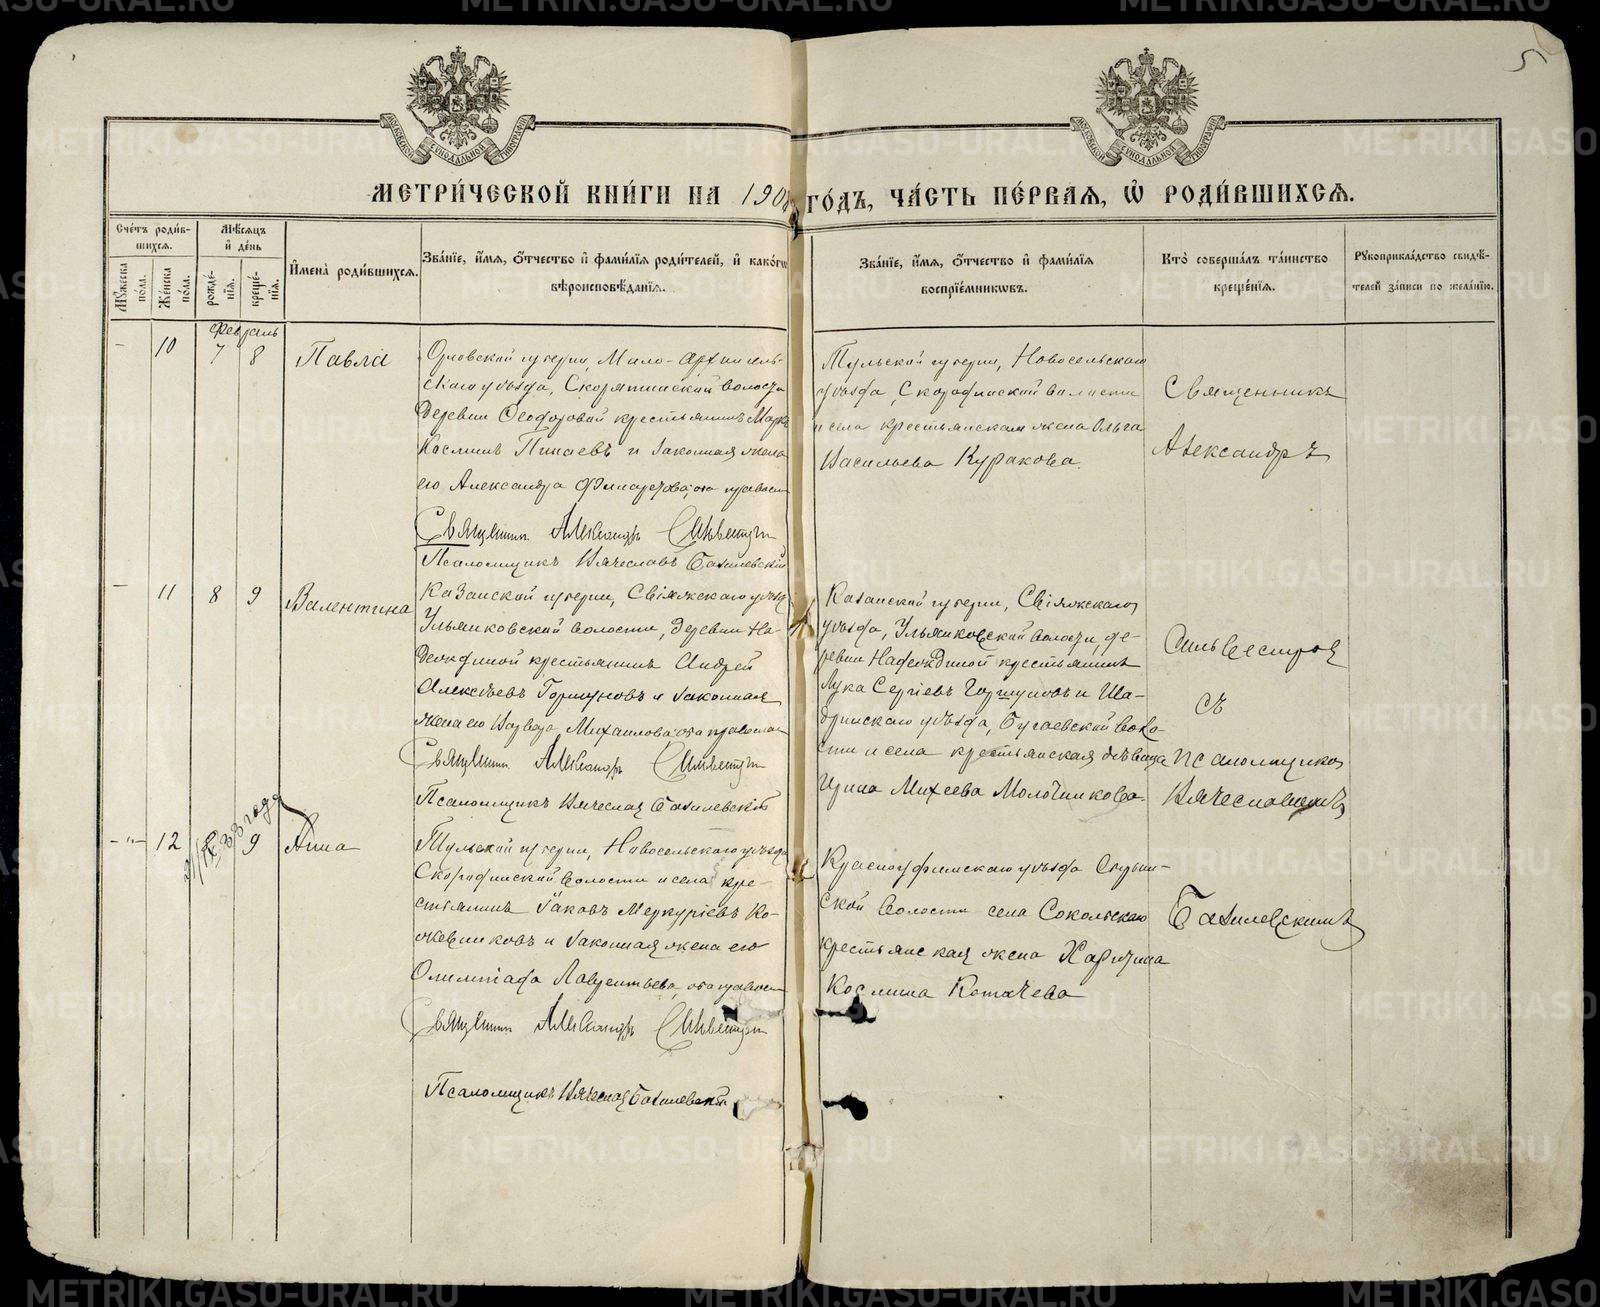 МЕТРИ́ЧЕСКОЙ КНИ́ГИ НА 1908 ГО́ДЪ, ЧА́СТЬ ПЕ́РВАЯ, Ѡ РОДИ́ВШИХСЯ.
Сче́тъ роди́в-
шихся.
Му́жеска по́ла.
Же́нска по́ла.
Мѣ́сяцъ и де́нь
рожде́-нія.
креще́-нія.
Имена̀ роди́вшихся.
Зва́нїе, и́мя, о́тчество и фами́лїя роди́телей, и како́гѡ
вѣроисповѣ́данїя.
Зва́нїе, и́мя, о́тчество и фами́лїя
воспрїе́мникѡвъ.
Кто̀ соверша́лъ та́инство
креще́нїя.
Рꙋкоприкла́дство свидѣ́-
телей за́писи по жела́нїю.
5
Февраль
10 7 8 Павла
Орловской губерніи, Мало-Архангель-
скаго уѣзда, волости
деревни Ѳеодоровой крестьянинъ Марк
Косминъ Пинаевъ и законная жена
его Александра оба правосл
Священникъ Александръ Сильвестровъ
Псаломщикъ Вячеславъ Базилевскій
Тульской губерніи, Новосельскаго
уѣзда, волости
и села крестьянская жена Ольга
Васильева Куракова.
Священникъ
Александръ
11 8 9 Валентина
Казанской губерніи, Свіяжскаго уѣзд
Ульянковской волости, деревни На-
крестьянинъ Андрей
Алексѣевъ Горшуновъ и законная
жена его Варвара Михаилова оба правосла
Священникъ Александръ Сильвестровъ
Псаломщикъ Вячеслав Базилевскій
Казанской губерніи, Свіяжскаго
уѣзда, Ульянковской волости, де-
ревни крестьянинъ
Лука Сергіевъ Горшуновъ и Ша-
дринскаго уѣзда, Бугаевской воло-
сти и села крестьянская дѣвица
Ирина Михеева Молочникова.
Сильвестров
съ
псаломщиком
Вячеславомъ
12 9 Анна
Тульской губерніи, Новосельскаго уѣзда
волости и села кре-
стьянинъ Іаковъ Меркуріевъ Ко-
жевниковъ и законная жена его
Олимпіада Лаврентьева, оба правосл
Священникъ Александръ Сильвестровъ
Псаломщикъ Вячеслав Базилевскій
Красноуфимскаго уѣзда
ской волости села Сокольскаго
крестьянская жена Харитина
Космина
Базилевскимъ